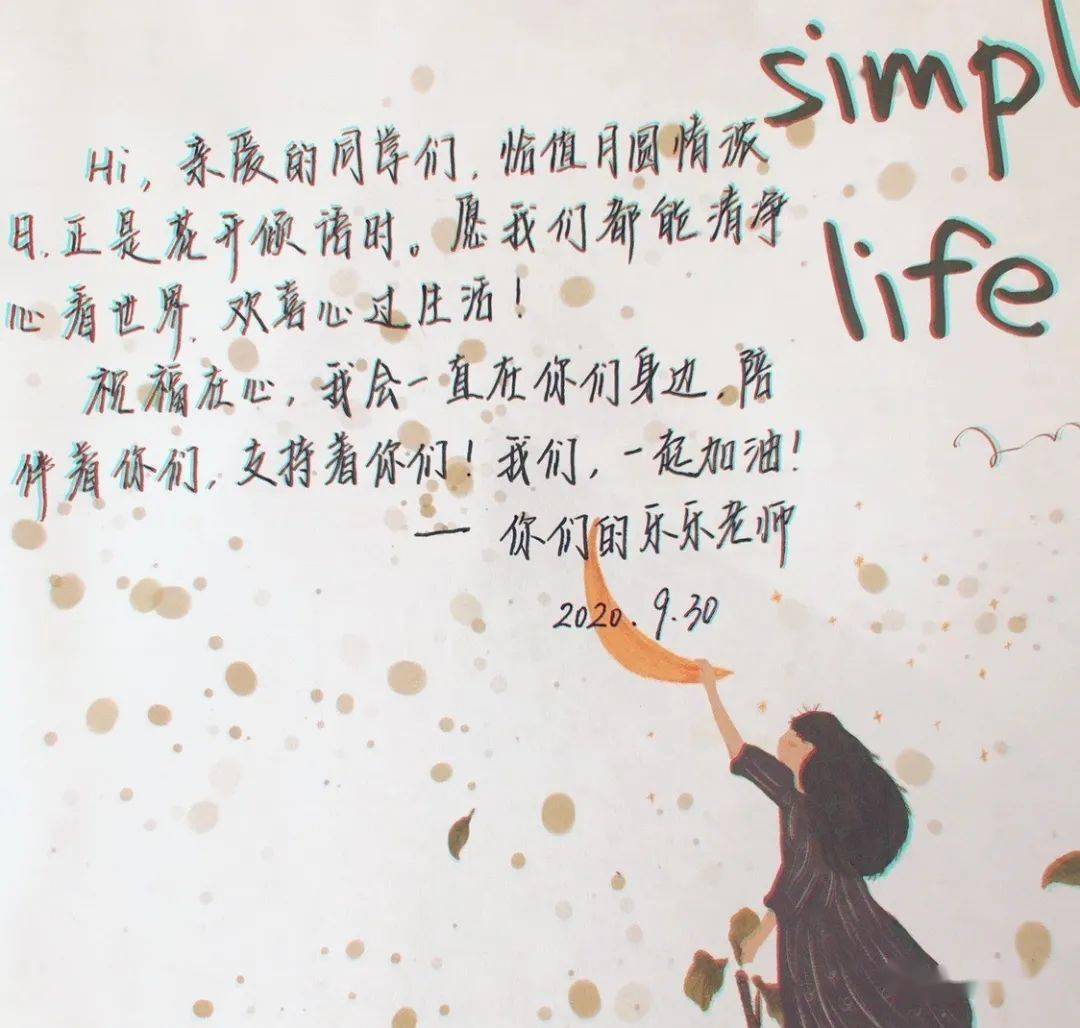 simpl
life
Hi，亲爱的同学们，恰值月圆情浓
日，正是花开倾语时。愿我们都能清净
心看世界，欢喜心过生活！
祝福在心，我会一直在你们身边，陪
伴着你们，支持着你们！我们，一起加油！
— 你们的乐乐老师
2020.9.30